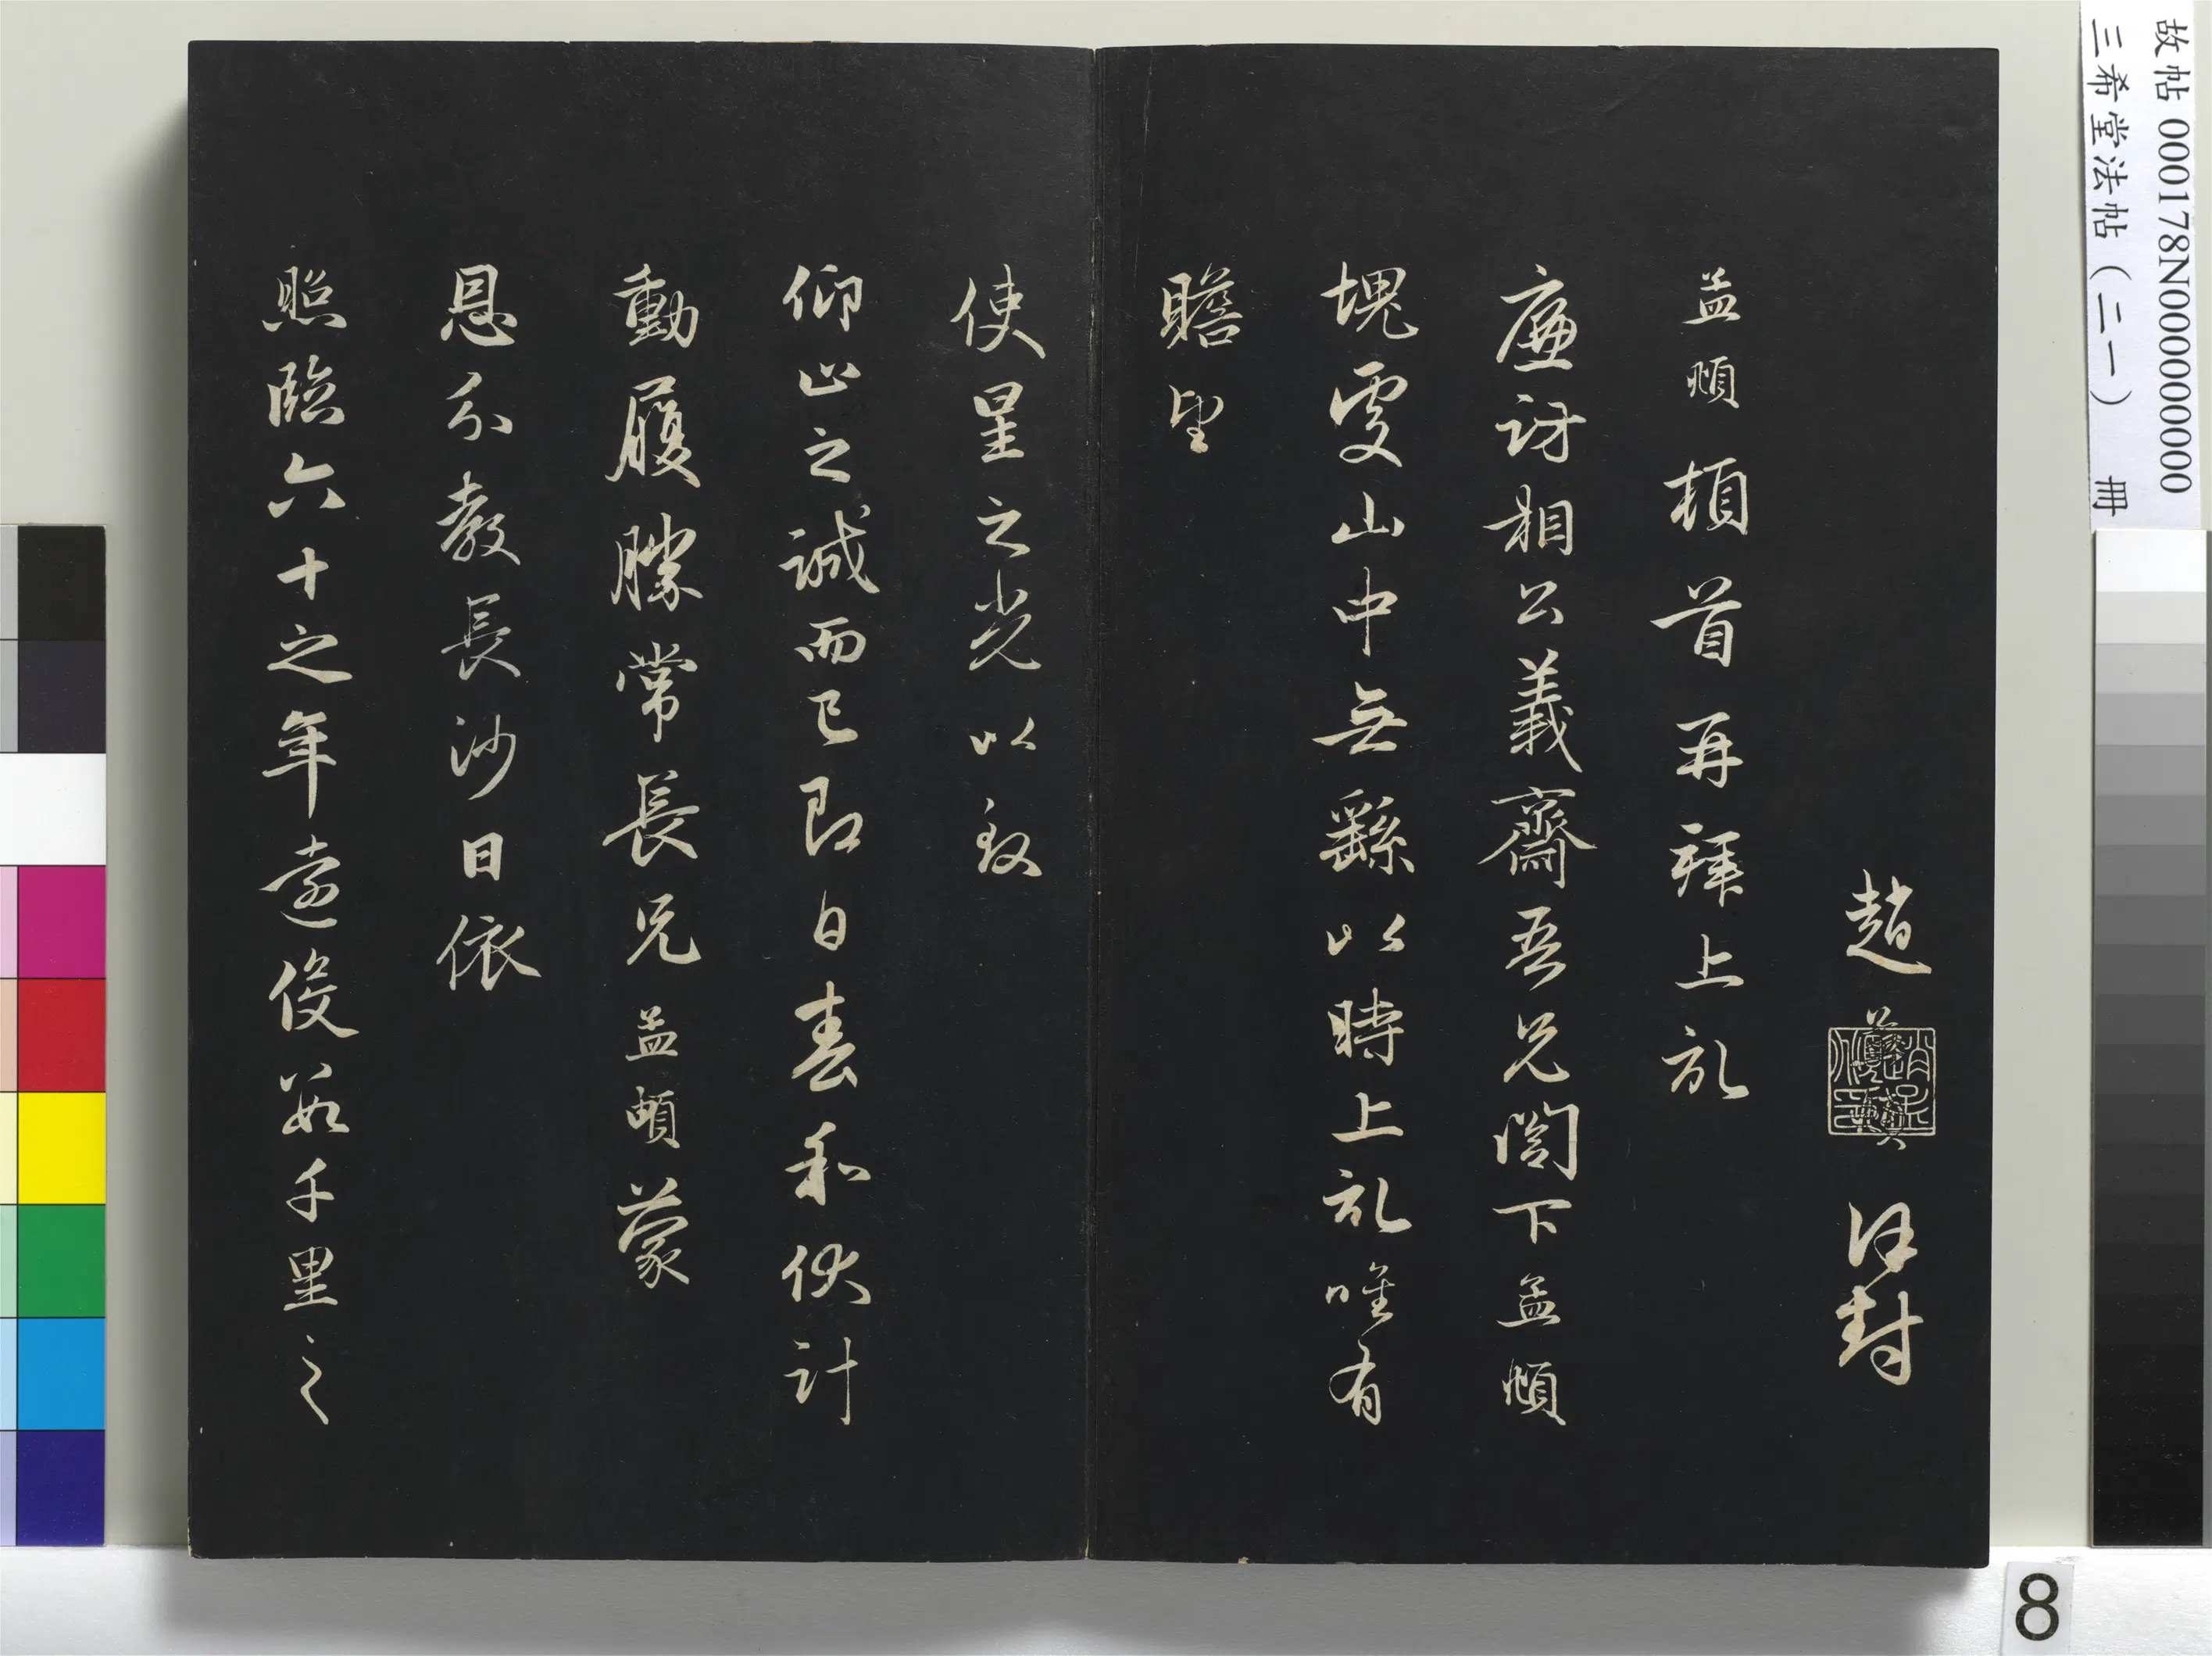 故帖 000178N000000000
三希堂法帖（二一） 冊
趙 謹封
孟頫頓首再拜上記
廉訪相公義齋吾兄閣下孟頫
塊處山中無繇以時上記唯有
瞻望
使星之光以致
仰止之誠而已即日春和伏計
動履勝常長兄孟頫蒙
恩分教長沙日依
照臨六十之年遠役數千里之
8